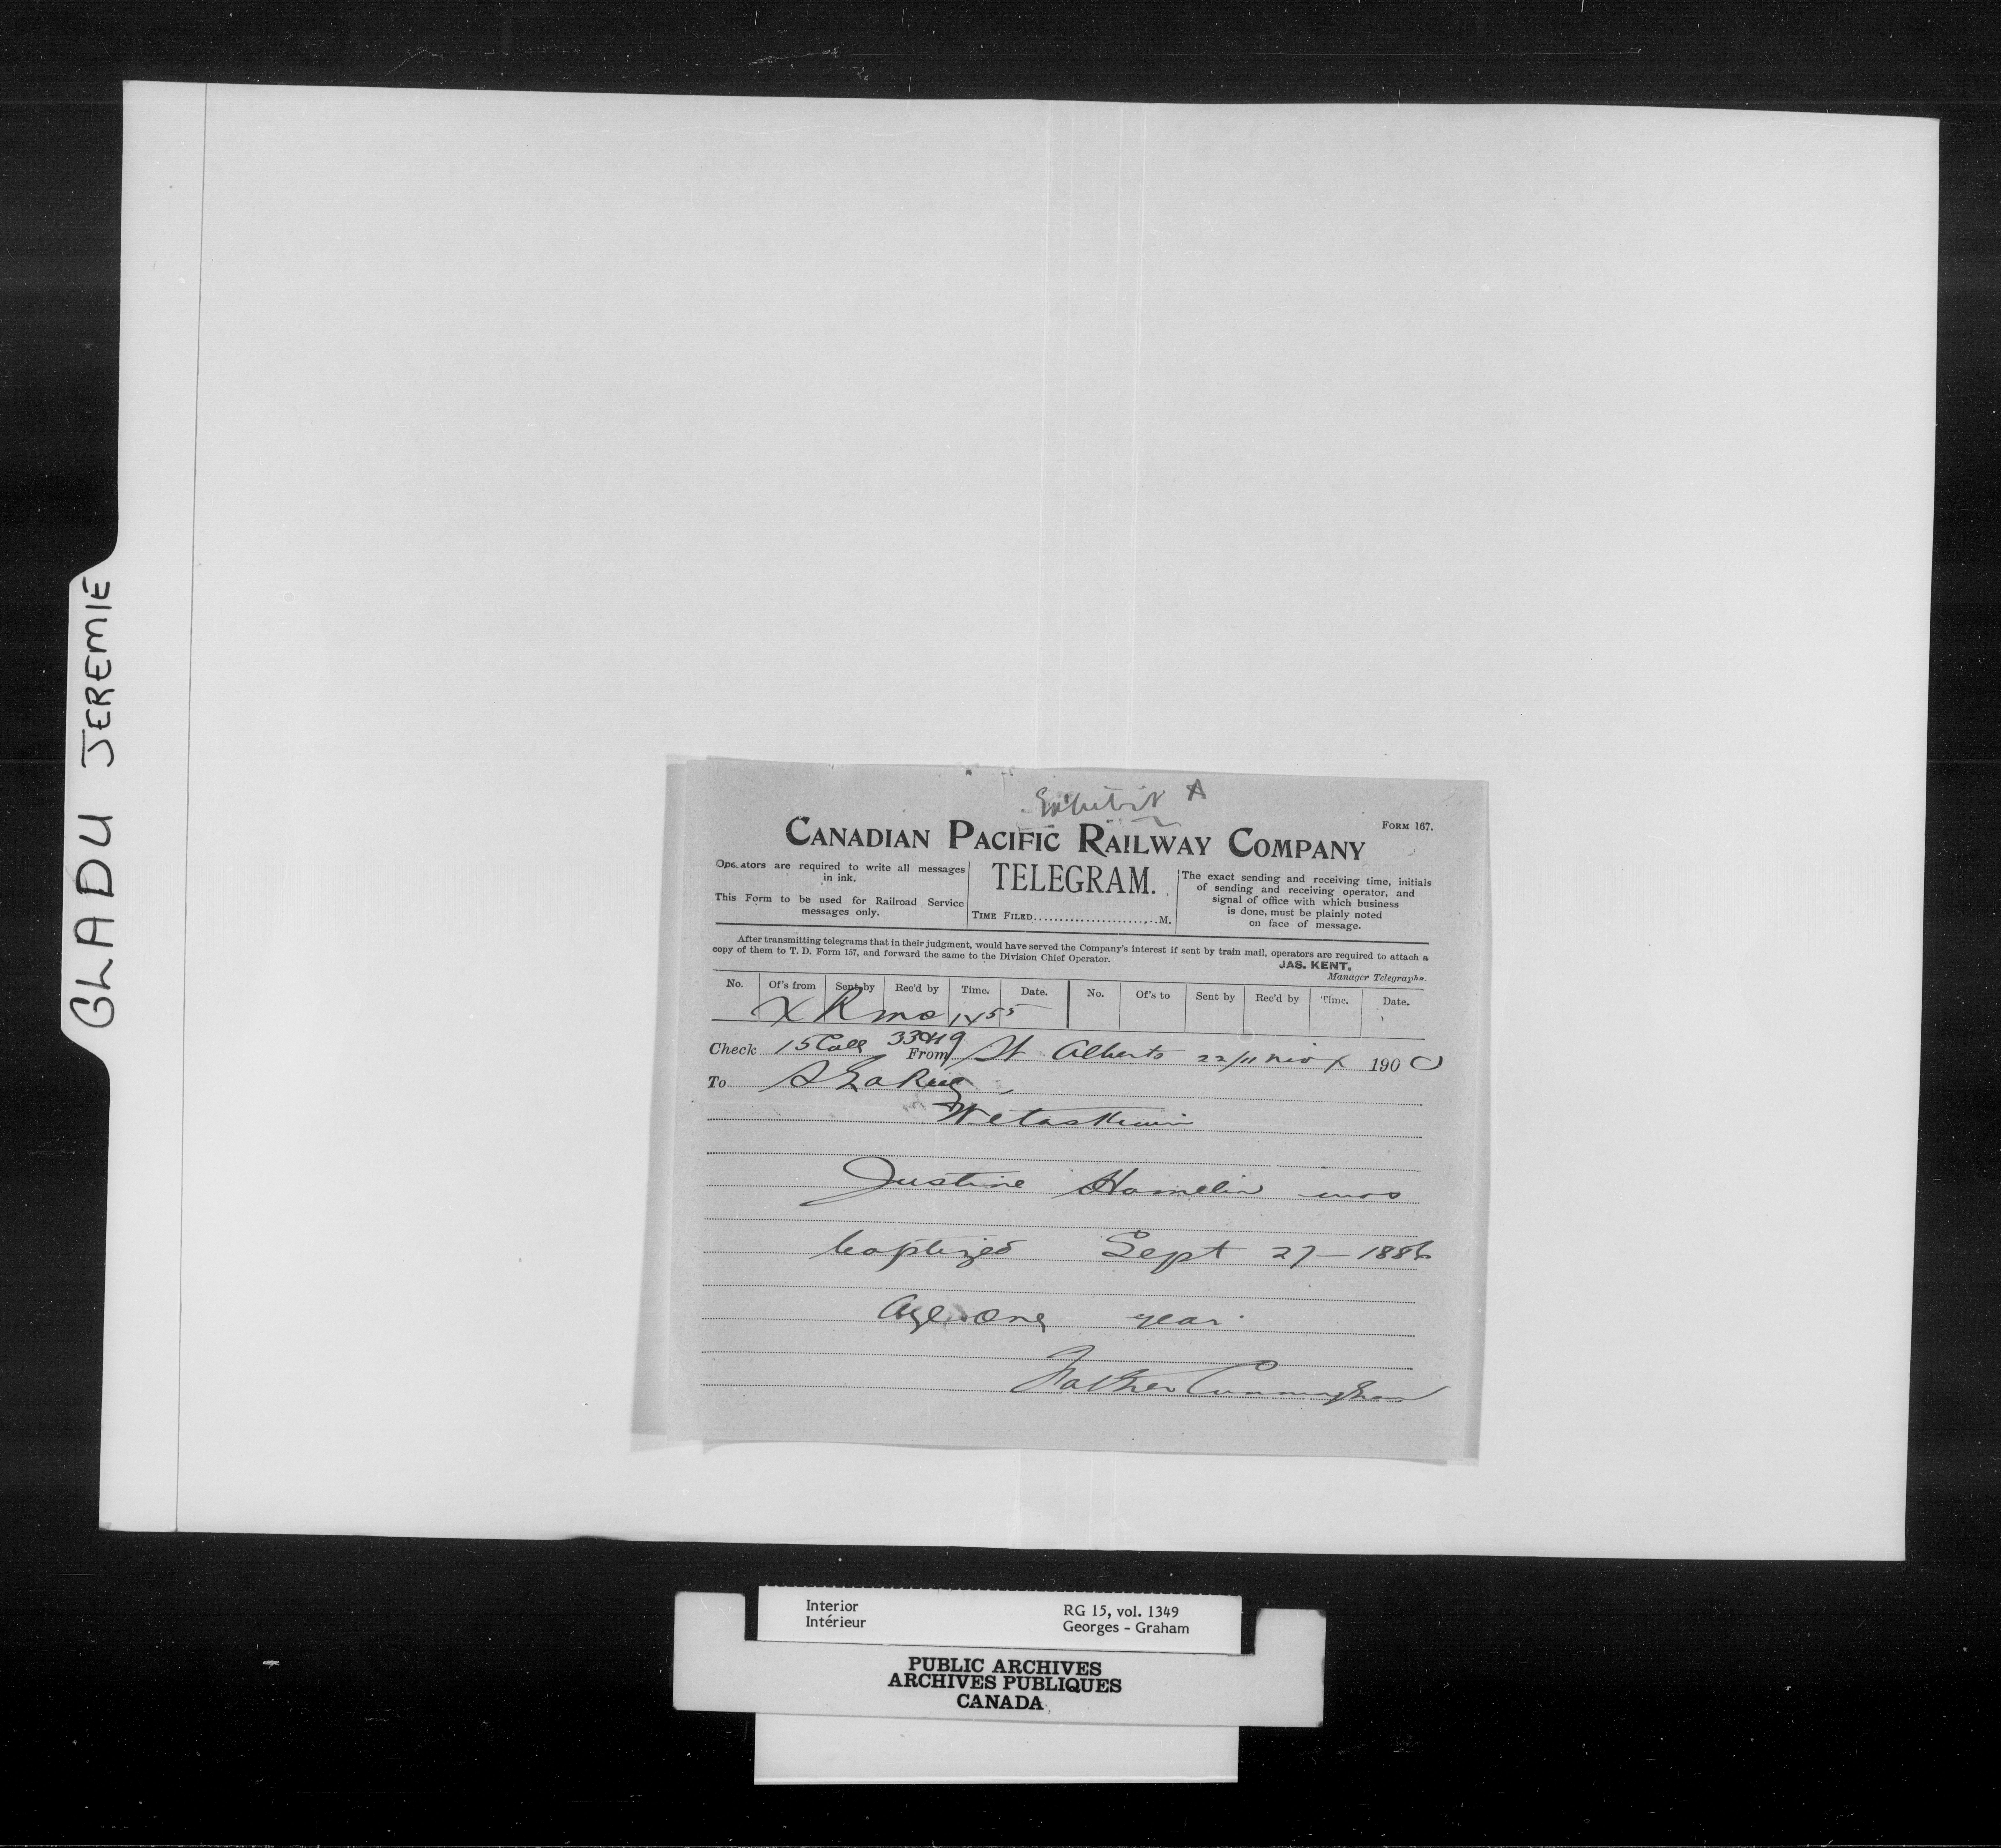 GLADU JEREMIE
Exhibit A
FORM 167.
CANADIAN PACIFIC RAILWAY COMPANY
Operators are required to write all messages
in ink.
This Form to be used for Railroad Service
messages only.
TELEGRAM.
TIME FILED........................M.
The exact sending and receiving time, initials
of sending and receiving operator, and
signal of office with which business
is done, must be plainly noted
on face of message.
After transmitting telegrams that in their judgment, would have served the Company's interest if sent by train mail, operators are required to attach a
copy of them to T. D. Form 157, and forward the same to the Division Chief Operator.
JAS. KENT,
Manager Telegraphs.
No. Of's from Sent by Rec'd by Time. Date. No. Of's to Sent by Rec'd by Time. Date.
X R
Check 15 Coll From St Alberts 22/11 190 0
To
Wetaskiwin
Justine Hamelin was
baptized Sept 27 - 1886
Age one year.
Father Cunningham
Interior
Intérieur
RG 15, vol. 1349
Georges - Graham
PUBLIC ARCHIVES
ARCHIVES PUBLIQUES
CANADA